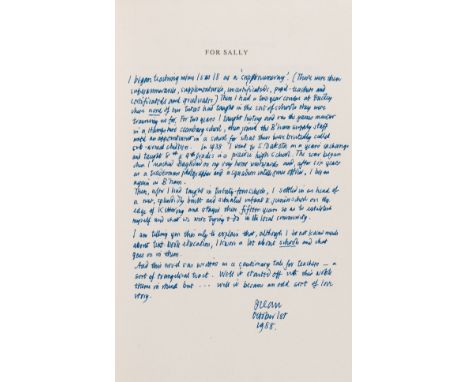 FOR SALLY
I began teaching when I was 18 as a 'supernumerary' (There were then
supernumeraries, supplementaries, uncertificateds, pupil-teachers and
certificateds and graduates) Then I had a two year course at Dudley
where none of our tutors had taught in the sort of schools they were
training us for. For two years I taught history and was the games master
in a Hampshire secondary school, then joined the B'ham supply staff
and appointment in a school for what then were brutally called
sub-normal children. In 1938 I went to S. Dakota on a year's exchange
and taught 5th & 6th grades in a prairie high school. The war began
when I reached England on my way home and, after six years
as a Intelligence photographer and a signals intelligence officer, I began
again in B'ham.
Then, after I had taught in twenty-two schools, I settled in as head of
a new, splendidly built and situated infant & junior school on the
edge of Kettering and stayed there fifteen years so as to establish
myself and what we were trying to do in the local community.
I am telling you this only to explain that, although I do not know much
about education, I know a lot about schools and what
goes on in them.
And this novel was written as a cautionary tale for teachers — a
sort of evangelical tract. Well it started off with this noble
theme in mind but ... well it became an odd sort of love
story.
October 1st
1988.